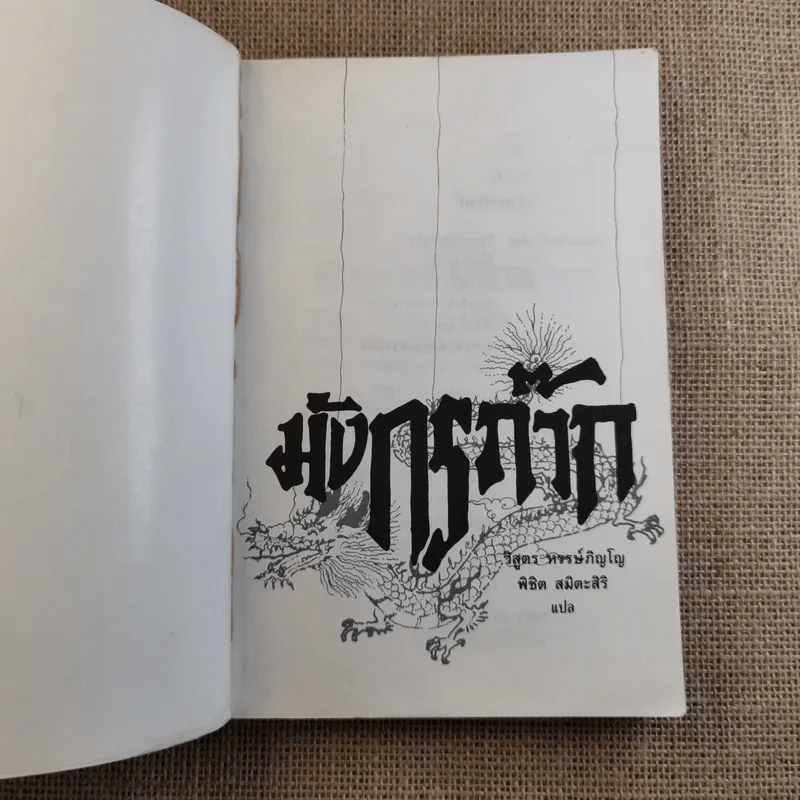 มังกรก๊าก
วิสูตร หรรษ์ภิญโญ
พิชิต สมิตะสิริ
แปล